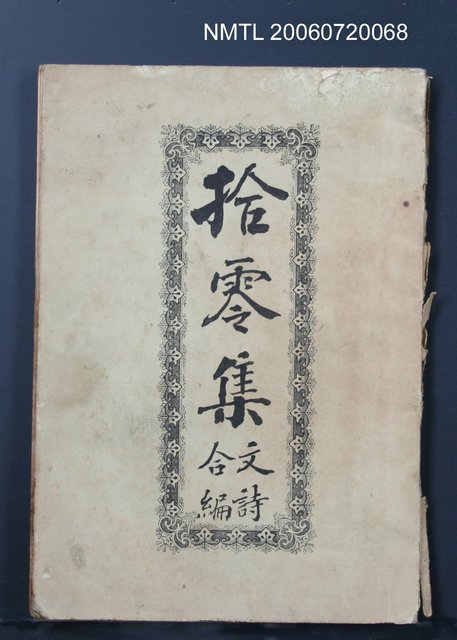 NMTL 20060720068
拾零集
文詩
合編